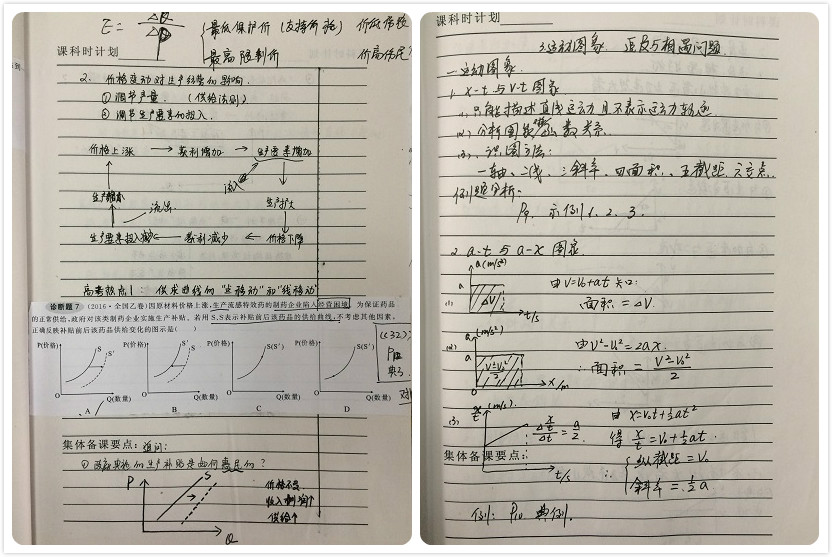 E = ΔQ / ΔP
最低保护价（支持价格）
课科时计划
最高限制价
2. 价格变动对生产经营的影响.
①调节产量. （供给法则）
②调节生产要素的投入.
价格上涨 → 获利增加 → 生产要素增加
流入
生产缩小
流出
生产扩大
生产要素投入减少 ← 获利减少 ← 价格下降
高考热点1: 供求曲线的“点移动”和“线移动”
诊断题7 (2016·全国乙卷)因原材料价格上涨,生产流感特效药的制药企业陷入经营困境。为保证药品
的正常供给,政府对该类制药企业实施生产补贴。若用S、S′表示补贴前后该药品的供给曲线,不考虑其他因素,
正确反映补贴前后该药品供给变化的图示是( )
P(价格) S S′ P(价格) S S′ P(价格) S(S′) P(价格) S(S′)
O Q(数量) O Q(数量) O Q(数量) O Q(数量)
A B C D
集体备课要点: 追问:
P S
价格不变
收入利润↑
供给↑
Q
课科时计划
3运动图象. 追及与相遇问题
一运动图象.
1. x-t与v-t图象
(1), 只能描述直线运动且不表示运动轨迹
(2) 分析图象函数关系.
(3), 识图方法:
一轴、二线、三斜率、四面积、五截距、六交点.
例题分析.
P9. 示例1. 2. 3.
2. a-t与a-x图象.
a(m/s²)
(1) a ΔV 0 t/s
由V=V₀+at知:
面积=ΔV.
(2) a(m/s²) a V²-V₀²/2 0 x/m
由V²-V₀²=2ax.
∴面积 = V²-V₀²/2
(3) x/t (m/s) t/s
由x=V₀t+½at²
得 x/t = V₀+½at.
集体备课要点:
∴ 纵截距=V₀
斜率=½a
例: P10 典例.